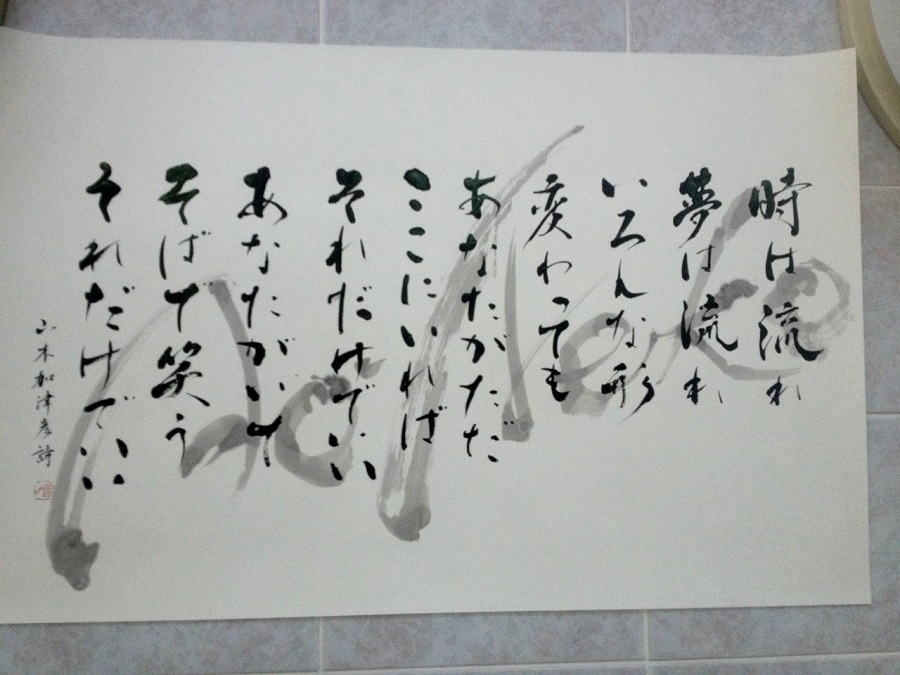 時は流れ
夢は流れ
いろんな形
変わっても
あなたがただ
ここにいれば
それだけでいい
あなたがいて
そばで笑う
それだけでいい
山本加津彦 詩